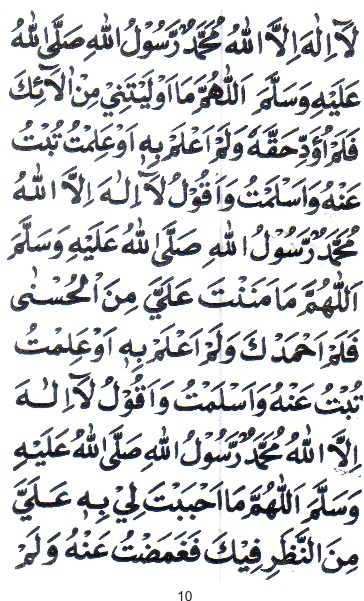 لَآ اِلٰهَ اِلَّا اللهُ مُحَمَّدٌ رَّسُوْلُ اللهِ صَلَّى اللهُ
عَلَيْهِ وَسَلَّمَ اَللّٰهُمَّ مَا اَوْلَيْتَنِيْ مِنْ اٰلَآئِكَ
فَلَمْ اُؤَدِّ حَقَّهٗ وَلَمْ اَعْلَمْ بِهٖ اَوْ عَلِمْتُ تُبْتُ
عَنْهُ وَاَسْلَمْتُ وَاَقُوْلُ لَآ اِلٰهَ اِلَّا اللهُ
مُحَمَّدٌ رَّسُوْلُ اللهِ صَلَّى اللهُ عَلَيْهِ وَسَلَّمَ
اَللّٰهُمَّ مَا مَنَنْتَ عَلَيَّ مِنَ الْحُسْنٰى
فَلَمْ اَحْمَدْكَ وَلَمْ اَعْلَمْ بِهٖ اَوْ عَلِمْتُ
تُبْتُ عَنْهُ وَاَسْلَمْتُ وَاَقُوْلُ لَآ اِلٰهَ
اِلَّا اللهُ مُحَمَّدٌ رَّسُوْلُ اللهِ صَلَّى اللهُ عَلَيْهِ
وَسَلَّمَ اَللّٰهُمَّ مَا اَحْبَبْتَ لِيْ بِهٖ عَلَيَّ
مِنَ النَّظَرِ فِيْكَ فَغَمَضْتُ عَنْهُ وَلَمْ
10